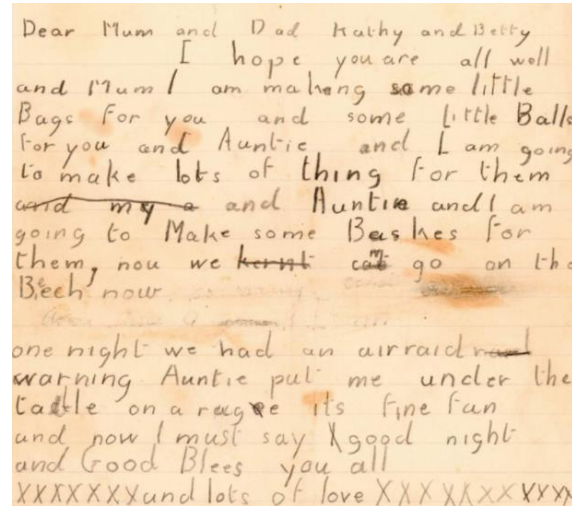 Dear Mum and Dad Kathy and Betty
I hope you are all well
and Mum I am makeng some little
Bags for you and some little Balls
for you and Auntie and I am going
to make lots of thing for them
and my a and Auntie and I am
going to Make some Baskes for
them, nou we go on the
Beech now
one night we had an airraid
warning Auntie put me under the
table on a rug its fine fun
and now I must say good night
and Good Blees you all
XXXXXXX and lots of love XXXXXXX XXXX